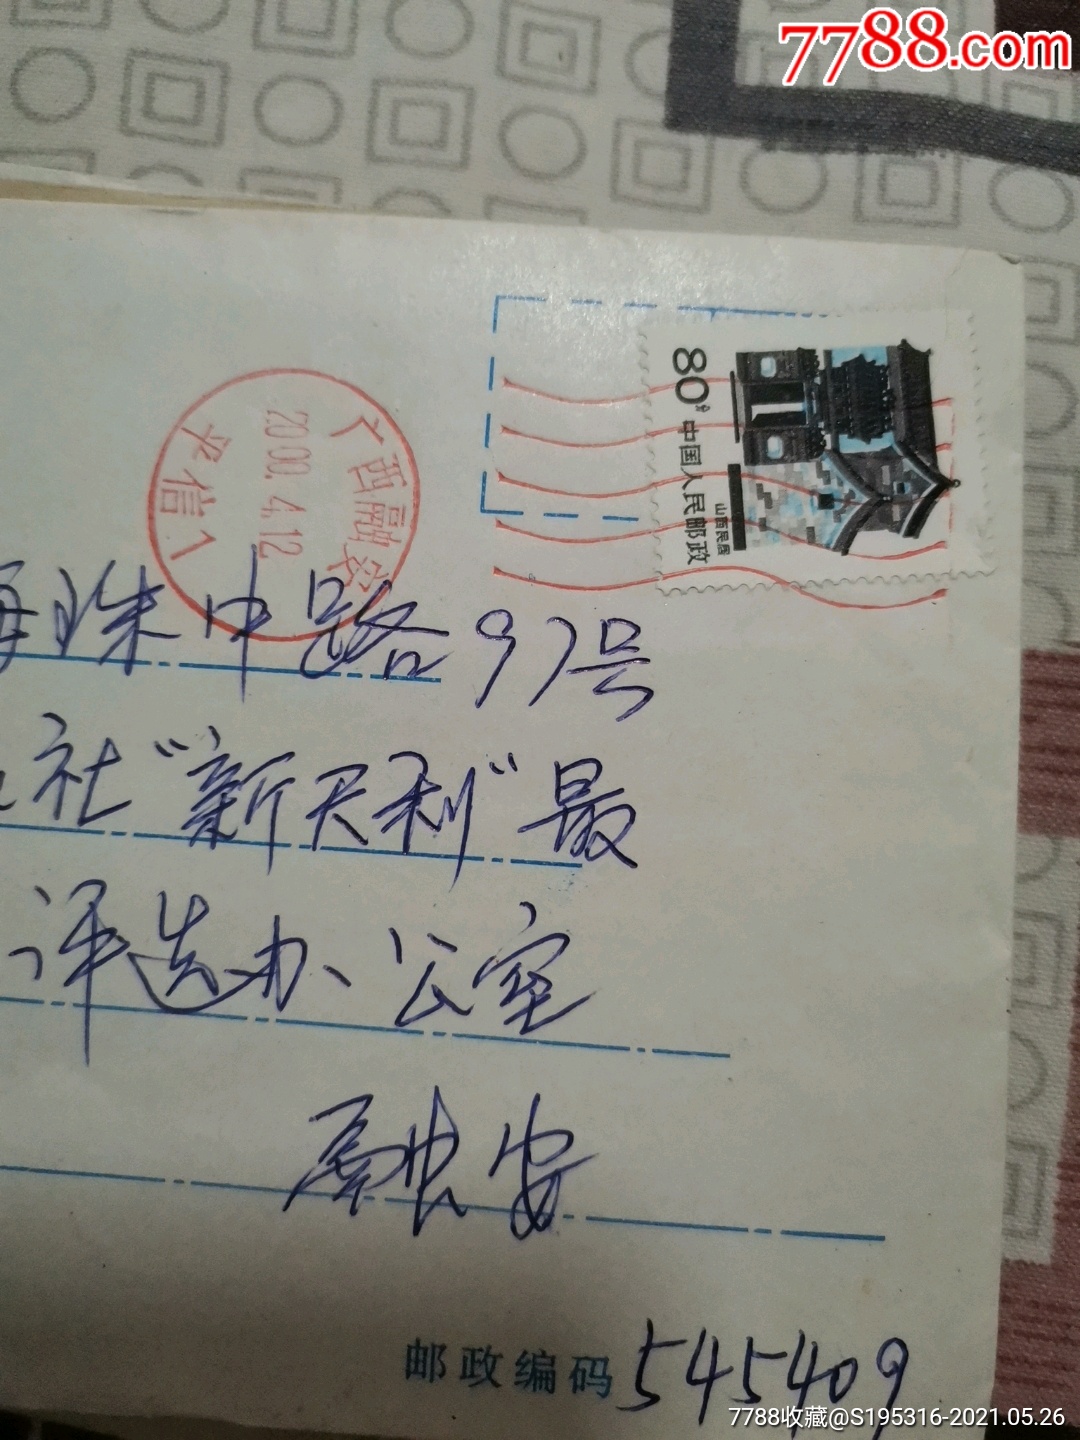 7788.com
80分 中国人民邮政
山西民居
广西融安
2000.4.12
平信1
海珠中路97号
社“新天利”最
评选办公室
融安
邮政编码 545409
7788收藏@S195316-2021.05.26